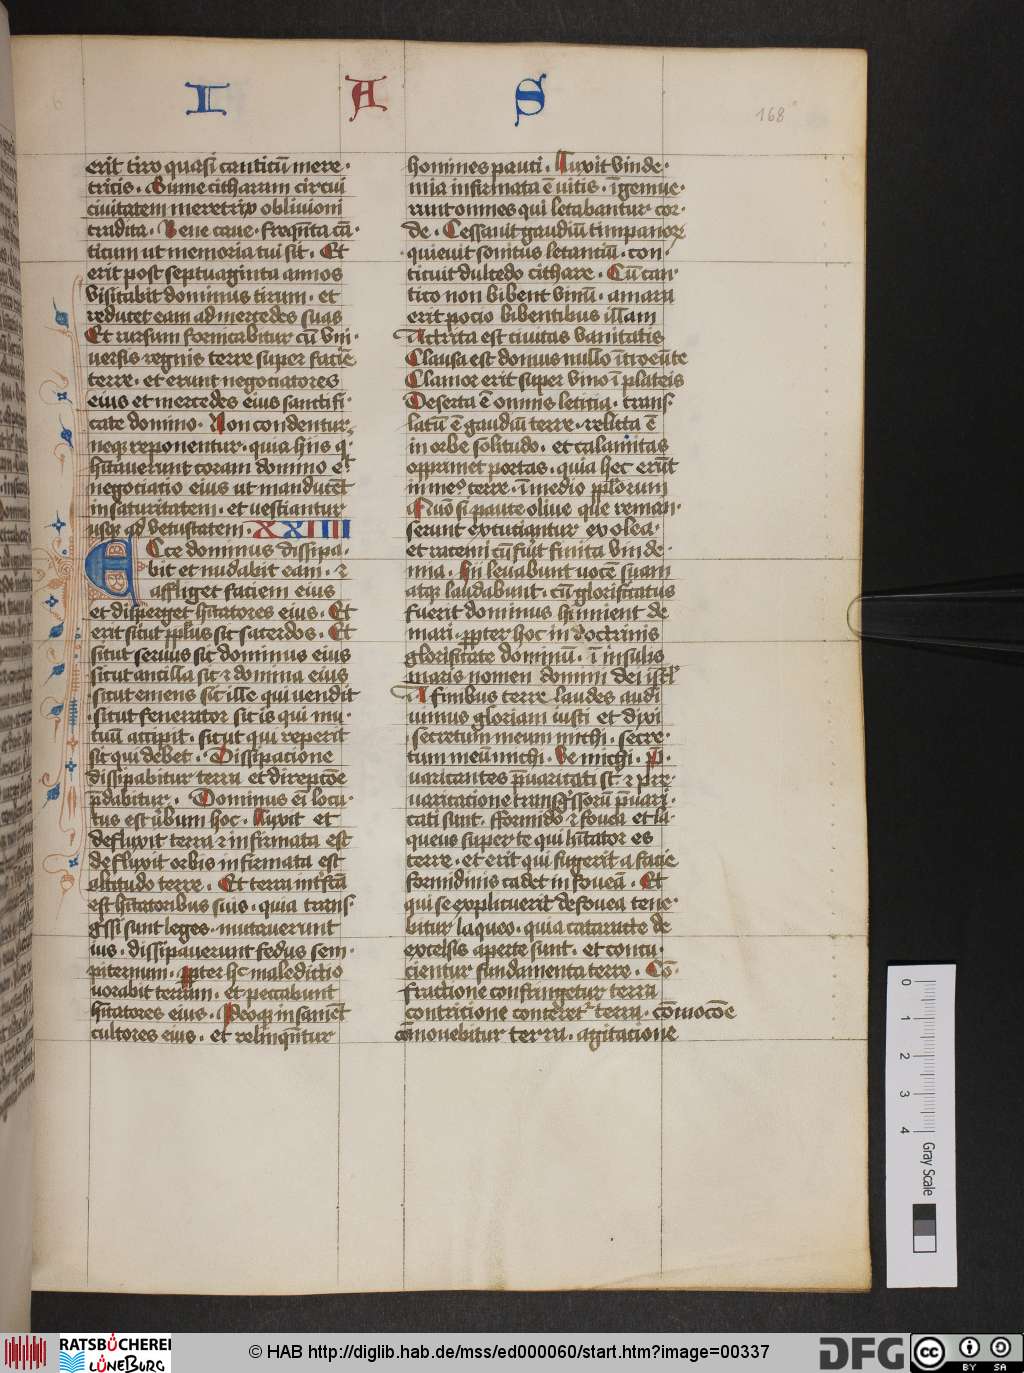 I A S
168
erit tiro quasi canticū mere·
tricis. Sume citharam circui
ciuitatem meretrix obliuioni
tradita. Bene cane. freqn̄ta cā·
ticum ut memoria tui sit. Et
erit post septuaginta annos
visitabit dominus tirum. et
reducet eam ad mercedes suas
Et rursum fornicabitur cū vni·
uersis regnis terre super faciē
terre. et erunt negociatores
eius et mercedes eius sanctifi·
cate domino. Non condentur
neqꝫ reponentur. quia hiis q·
hītauerunt coram domino e͛t
negociatio eius ut manducēt
in saturitatem. et vestiantur
usqꝫ ad vetustatem. XXIIII
Ecce dominus dissipa·
bit et nudabit eam. ⁊
affliget faciem eius
et disperget hītatores eius. Et
erit sicut pplus sic sacerdos. Et
sicut seruus sic dominus eius
sicut ancilla sic ⁊ domina eius
sicut emens sic ille qui vendit
sicut fenerator sic is qui mu·
tuū accipit. sicut qui reperit
sic qui debet. Dissipacione
dissipabitur terra et direpcōe
p̄dabitur. Dominus ei locu·
tus est v̾bum hoc. Luxit et
defluxit terra ⁊ infirmata est
defluxit orbis infirmata est
altitudo terre. Et terra int̾fcā
est hītatoribus suis. quia trans·
g̾ssi sunt leges. mutauerunt
ius. dissipauerunt fedus sem·
piternum. ꝓpter hͨ maledictio
vorabit terram. et peccabunt
hītatores eius. Ideoqꝫ insaniēt
cultores eius. et relinqn̄tur
homines pauci. Luxit vinde·
mia infirmata ē vitis. īgemue·
runt omnes qui letabantur cor·
de. Cessauit gaudiū timpanoꝝ
quieuit sonitus letantiū. con·
ticuit dulcedo cithare. Cū can·
tico non bibent vinū. amara
erit pocio bibentibus illam
Attrita est ciuitas vanitatis
Clausa est domus nullo ītroeūte
Clamor erit super vino ī plateis
Deserta ē omnis leticia. trans·
latū ē gaudiū terre. relicta ē
in orbe solitudo. et calamitas
opprimet portas. quia hec erūt
in meº terre. ī medio pplorum
Quō si pauce oliue que reman·
serunt excutiantur ex olea.
et racemi cū fu̾it finita vinde·
mia. Hii leuabunt vocē suam
atqꝫ laudabunt. cū glorificatus
fuerit dominus hinnient de
mari. ꝓpter hoc in doctrinis
glorificate dominū. ī insulis
maris nomen domini dei isrl̾
A finibus terre laudes audi
uimus gloriam iusti et dixi
secretum meum michi. secre·
tum meū michi. Ve michi. P·
uaricantes p̄uaricati st̄ ⁊ pre·
uaricatione transg̾ssorū p̄uari·
cati sunt. fformido ⁊ fouea et la·
queus super te qui hītator es
terre. et erit qui fugerit a facie
formidinis cadet in foueā. Et
qui se explicuerit de fouea tene·
bitur laqueo. quia cataracte de
excelsis aperte sunt. et concu·
cientur fundamenta terre. Cō·
fractione confringetur terra
contricione conteret̾ terra. cōmocōe
cōmouebitur terra. agitacione
0 1 2 3 4 Gray Scale
RATSBÜCHEREI LÜNEBURG
© HAB http://diglib.hab.de/mss/ed000060/start.htm?image=00337
DFG
cc BY SA